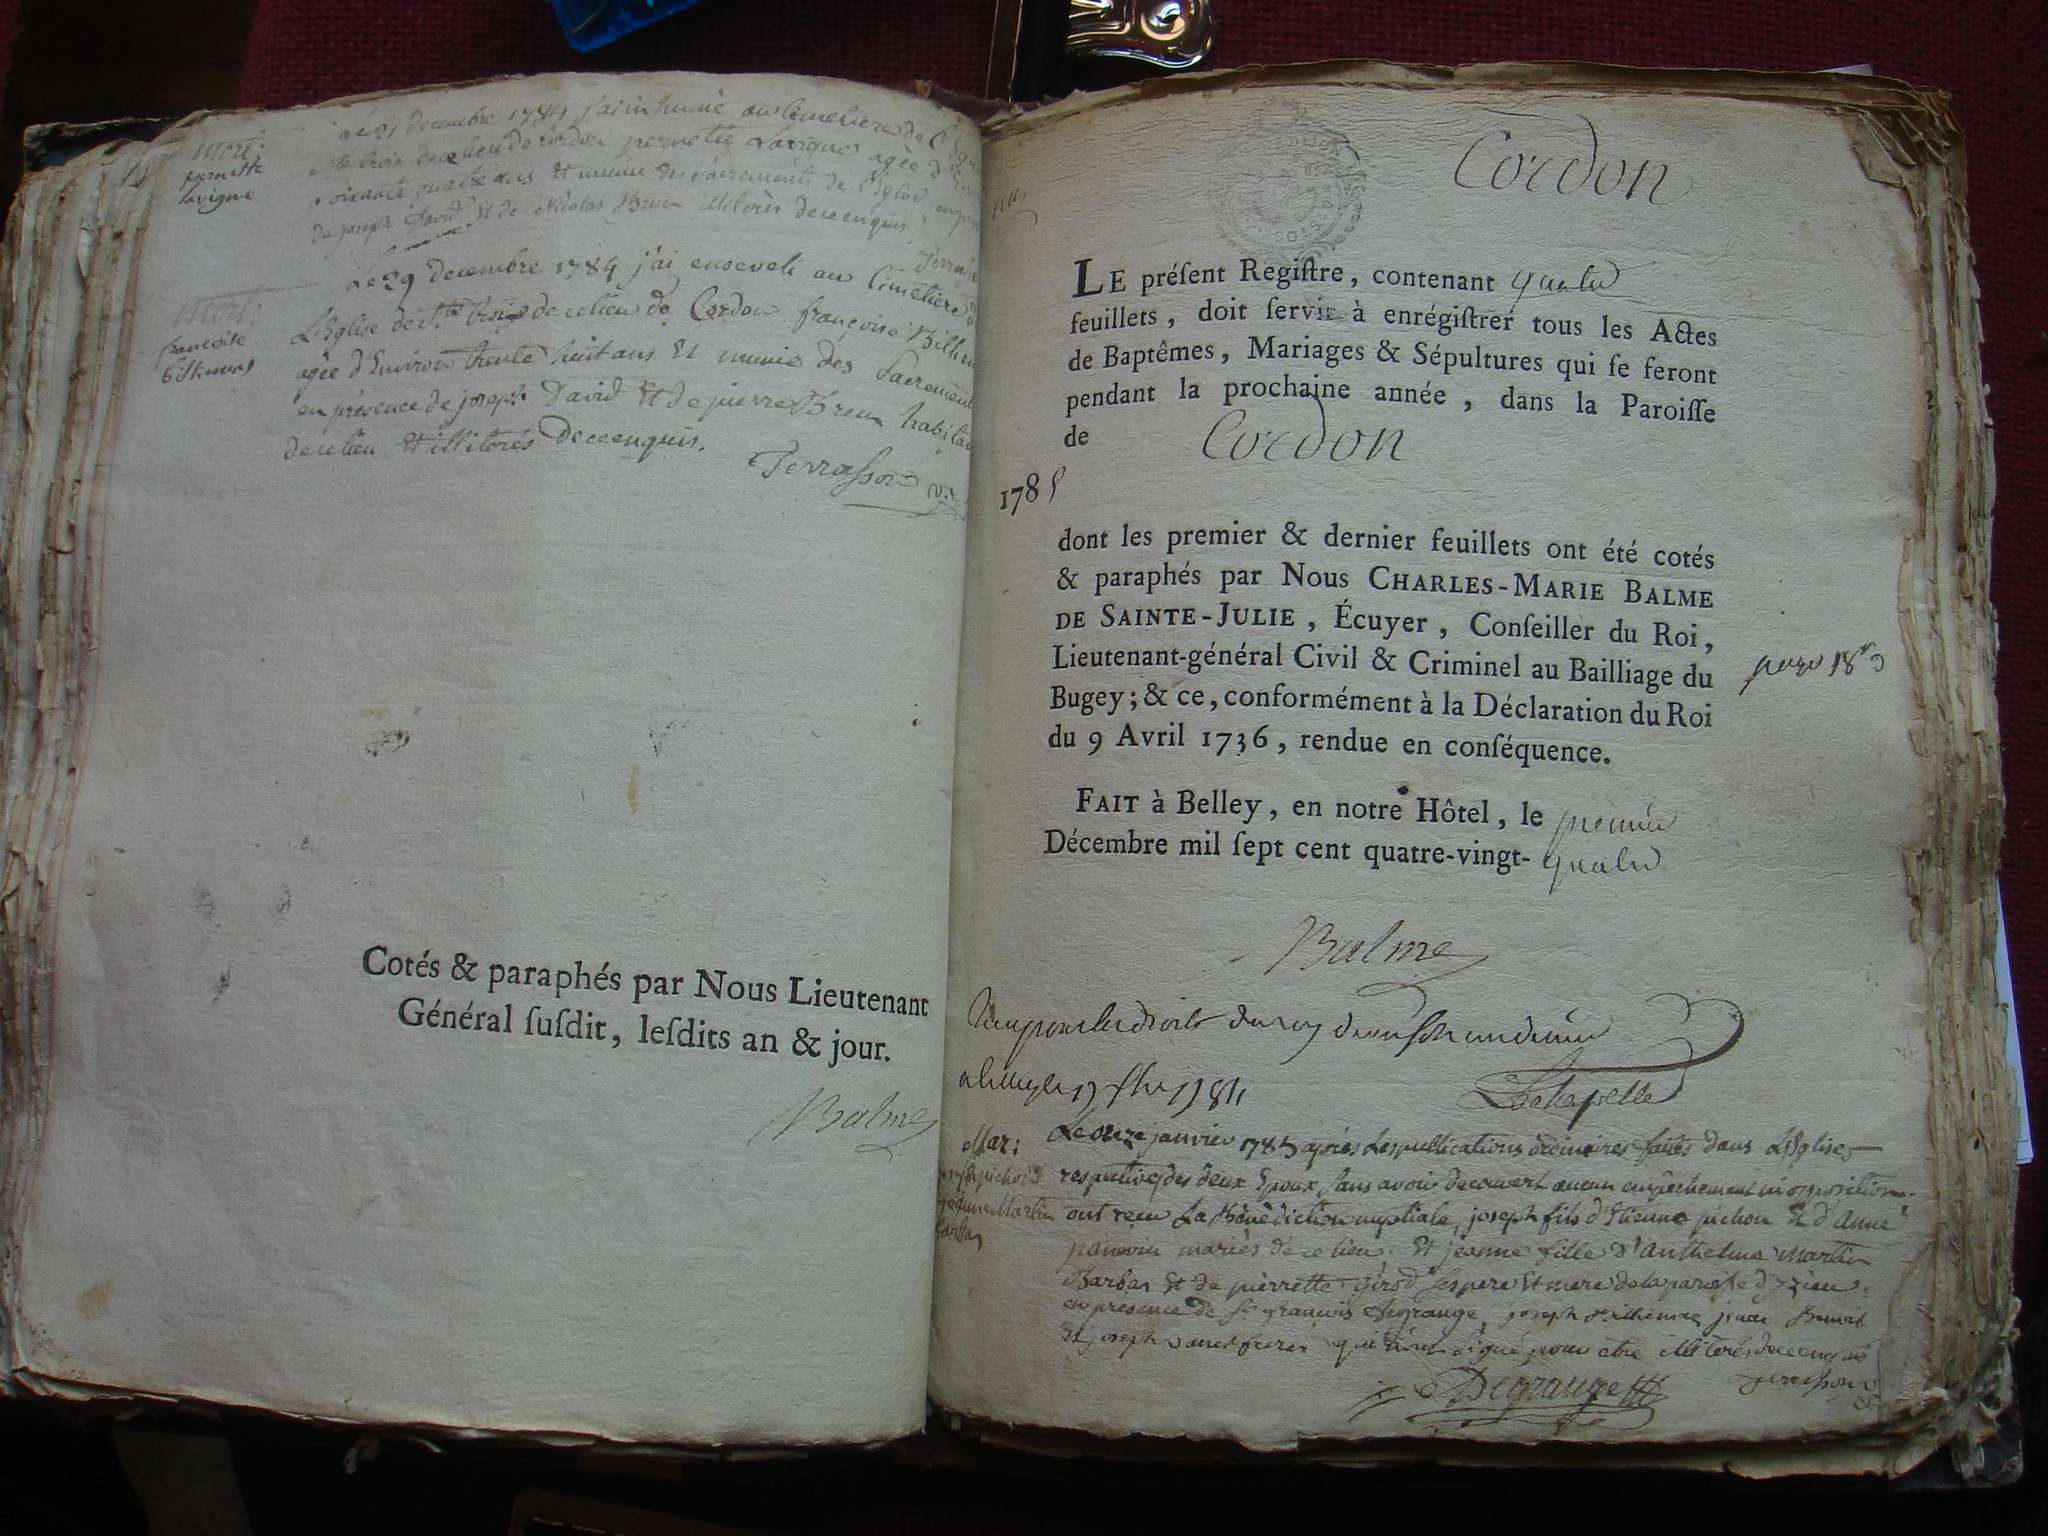 mort:
pernette
lavigne
Le 21 decembre 1784 j'ai inhumé au Cimetiere de
de ce lieu de Cordon pernette Lavigne agée d'En
soixante quatre ans Et munie des Sacrements de l'Eglise, en
de joseph David Et de Nicolas Brun illiterés de ce enquis
mort:
francoise
Le 29 decembre 1784 j'ai enseveli au Cimetiere d
L'Eglise de Ste de ce lieu de Cordon françoise
agée d'Environ trente huit ans Et munie des Sacrement
en présence de joseph David Et de pierre Brun habitan
de ce lieu Et illiterés de ce enquis.
Terrasson
Cotés & paraphés par Nous Lieutenant
Général ſuſdit, leſdits an & jour.
Balme
Cordon
LE préſent Regiſtre, contenant quatre
feuillets, doit ſervir à enrégiſtrer tous les Actes
de Baptêmes, Mariages & Sépultures qui ſe feront
pendant la prochaine année, dans la Paroiſſe
de Cordon
1785
dont les premier & dernier feuillets ont été cotés
& paraphés par Nous CHARLES-MARIE BALME
DE SAINTE-JULIE, Écuyer, Conſeiller du Roi,
Lieutenant-général Civil & Criminel au Bailliage du
Bugey; & ce, conformément à la Déclaration du Roi
du 9 Avril 1736, rendue en conſéquence.
FAIT à Belley, en notre Hôtel, le premier
Décembre mil ſept cent quatre-vingt-quatre
Balme
1784
Lachapelle
Mar:
Le onze janvier 1785 après Les publications ordinaires faites dans L'Eglise
respective des deux Epoux sans avoir decouvert aucun empêchement ni opposition
ont reçu La Bénédiction nuptiale, joseph fils d'Etienne pichon Et d'Anne
mariés de ce lieu. Et jeanne fille d'Anthelme Martin
Barban Et de pierrette Girod ses pere Et mere de la paroisse d'yzieu.
en presence de Sr françois Degrange, joseph jean Benoit
Et joseph pour etre illiterés de ce enquis
Degrange
Terrasson